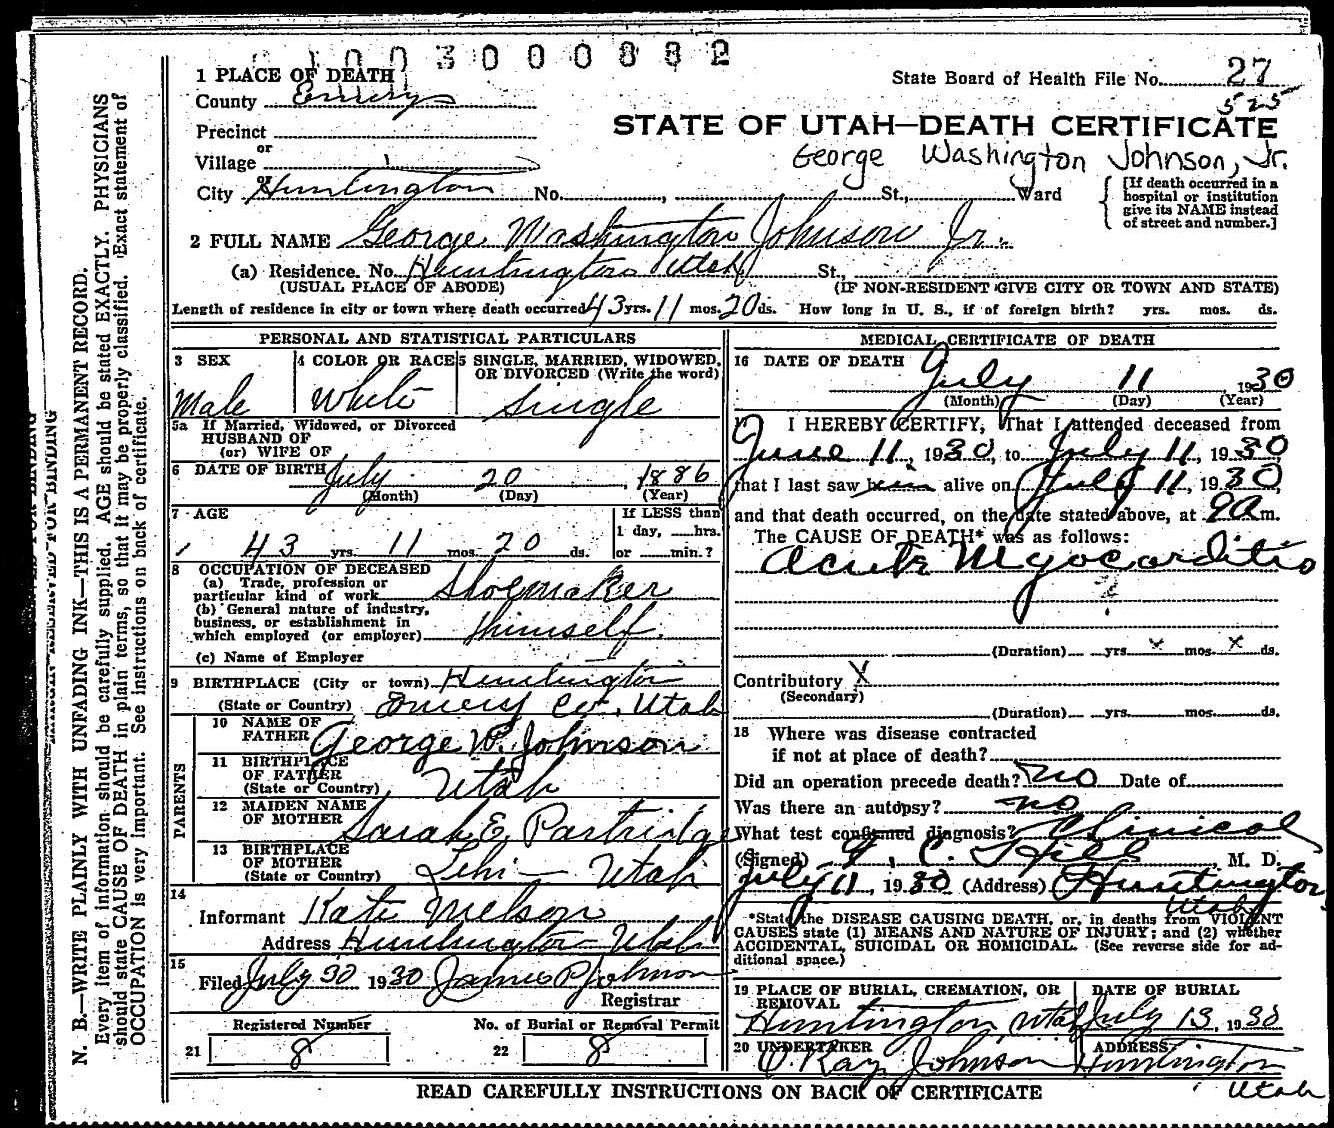 1003000882
1 PLACE OF DEATH
County Emery
State Board of Health File No. 27
525
Precinct
or
Village
STATE OF UTAH—DEATH CERTIFICATE
George Washington Johnson, Jr.
or
City Huntington No. , St., Ward
[If death occurred in a
hospital or institution
give its NAME instead
of street and number.]
2 FULL NAME George Washington Johnson Jr.
(a) Residence. No. Huntington Utah St.,
(USUAL PLACE OF ABODE) (IF NON-RESIDENT GIVE CITY OR TOWN AND STATE)
Length of residence in city or town where death occurred 43 yrs. 11 mos. 20 ds. How long in U. S., if of foreign birth? yrs. mos. ds.
PERSONAL AND STATISTICAL PARTICULARS
3 SEX
Male
4 COLOR OR RACE
White
5 SINGLE, MARRIED, WIDOWED,
OR DIVORCED (Write the word)
Single
5a If Married, Widowed, or Divorced
HUSBAND OF
(or) WIFE OF
6 DATE OF BIRTH July 20, 1886
(Month) (Day) (Year)
7 AGE
43 yrs. 11 mos. 20 ds.
If LESS than
1 day, hrs.
or min.?
8 OCCUPATION OF DECEASED
(a) Trade, profession or
particular kind of work Shoemaker
(b) General nature of industry,
business, or establishment in
which employed (or employer) himself
(c) Name of Employer
9 BIRTHPLACE (City or town) Huntington
(State or Country) Emery Co. Utah
PARENTS
10 NAME OF
FATHER George W. Johnson
11 BIRTHPLACE
OF FATHER
(State or Country) Utah
12 MAIDEN NAME
OF MOTHER Sarah E Partridge
13 BIRTHPLACE
OF MOTHER
(State or Country) Lehi - Utah
14
Informant Kate Nelson
Address Huntington Utah
15
Filed July 30 1930 James P Johnson
Registrar
Registered Number
21 8
No. of Burial or Removal Permit
22 8
MEDICAL CERTIFICATE OF DEATH
16 DATE OF DEATH
July 11, 1930
(Month) (Day) (Year)
I HEREBY CERTIFY, That I attended deceased from
June 11, 1930, to July 11, 1930
that I last saw him alive on July 11, 1930,
and that death occurred, on the date stated above, at 9 a m.
The CAUSE OF DEATH* was as follows:
Acute Myocarditis
?
(Duration) yrs. x mos. x ds.
Contributory X
(Secondary)
(Duration) yrs. mos. ds.
18 Where was disease contracted
if not at place of death?
Did an operation precede death? no Date of
Was there an autopsy? no
What test confirmed diagnosis? Clinical
(Signed) C. Hill, M. D.
July 11, 1930 (Address) Huntington
Utah
*State the DISEASE CAUSING DEATH, or, in deaths from VIOLENT
CAUSES state (1) MEANS AND NATURE OF INJURY; and (2) whether
ACCIDENTAL, SUICIDAL OR HOMICIDAL. (See reverse side for ad-
ditional space.)
19 PLACE OF BURIAL, CREMATION, OR
REMOVAL
Huntington, Utah
DATE OF BURIAL
July 13, 1930
20 UNDERTAKER
O. Ray Johnson
ADDRESS
Huntington
Utah
READ CAREFULLY INSTRUCTIONS ON BACK OF CERTIFICATE
MARGIN RESERVED FOR BINDING
N. B.—WRITE PLAINLY WITH UNFADING INK—THIS IS A PERMANENT RECORD.
Every item of information should be carefully supplied. AGE should be stated EXACTLY. PHYSICIANS
should state CAUSE OF DEATH in plain terms, so that it may be properly classified. Exact statement of
OCCUPATION is very important. See instructions on back of certificate.